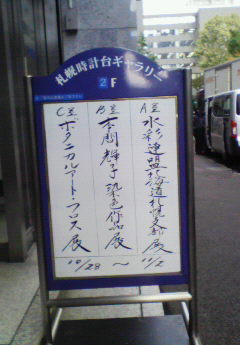 札幌時計台ギャラリー
2F
A室 水彩連盟北海道札幌支部展
B室 本間輝子染色作品展
C室 ボタニカルアート・フロス展
10/28 〜 11/2